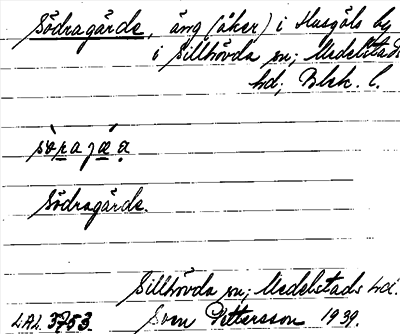 Södragärde, äng (åker) i Husgöls by
i Sillhövda sn; Medelstads
hd; Blek. l.
Södragärde.
Sillhövda sn; Medelstads hd.
L.A.L. 3753. Sven Pettersson 1939.